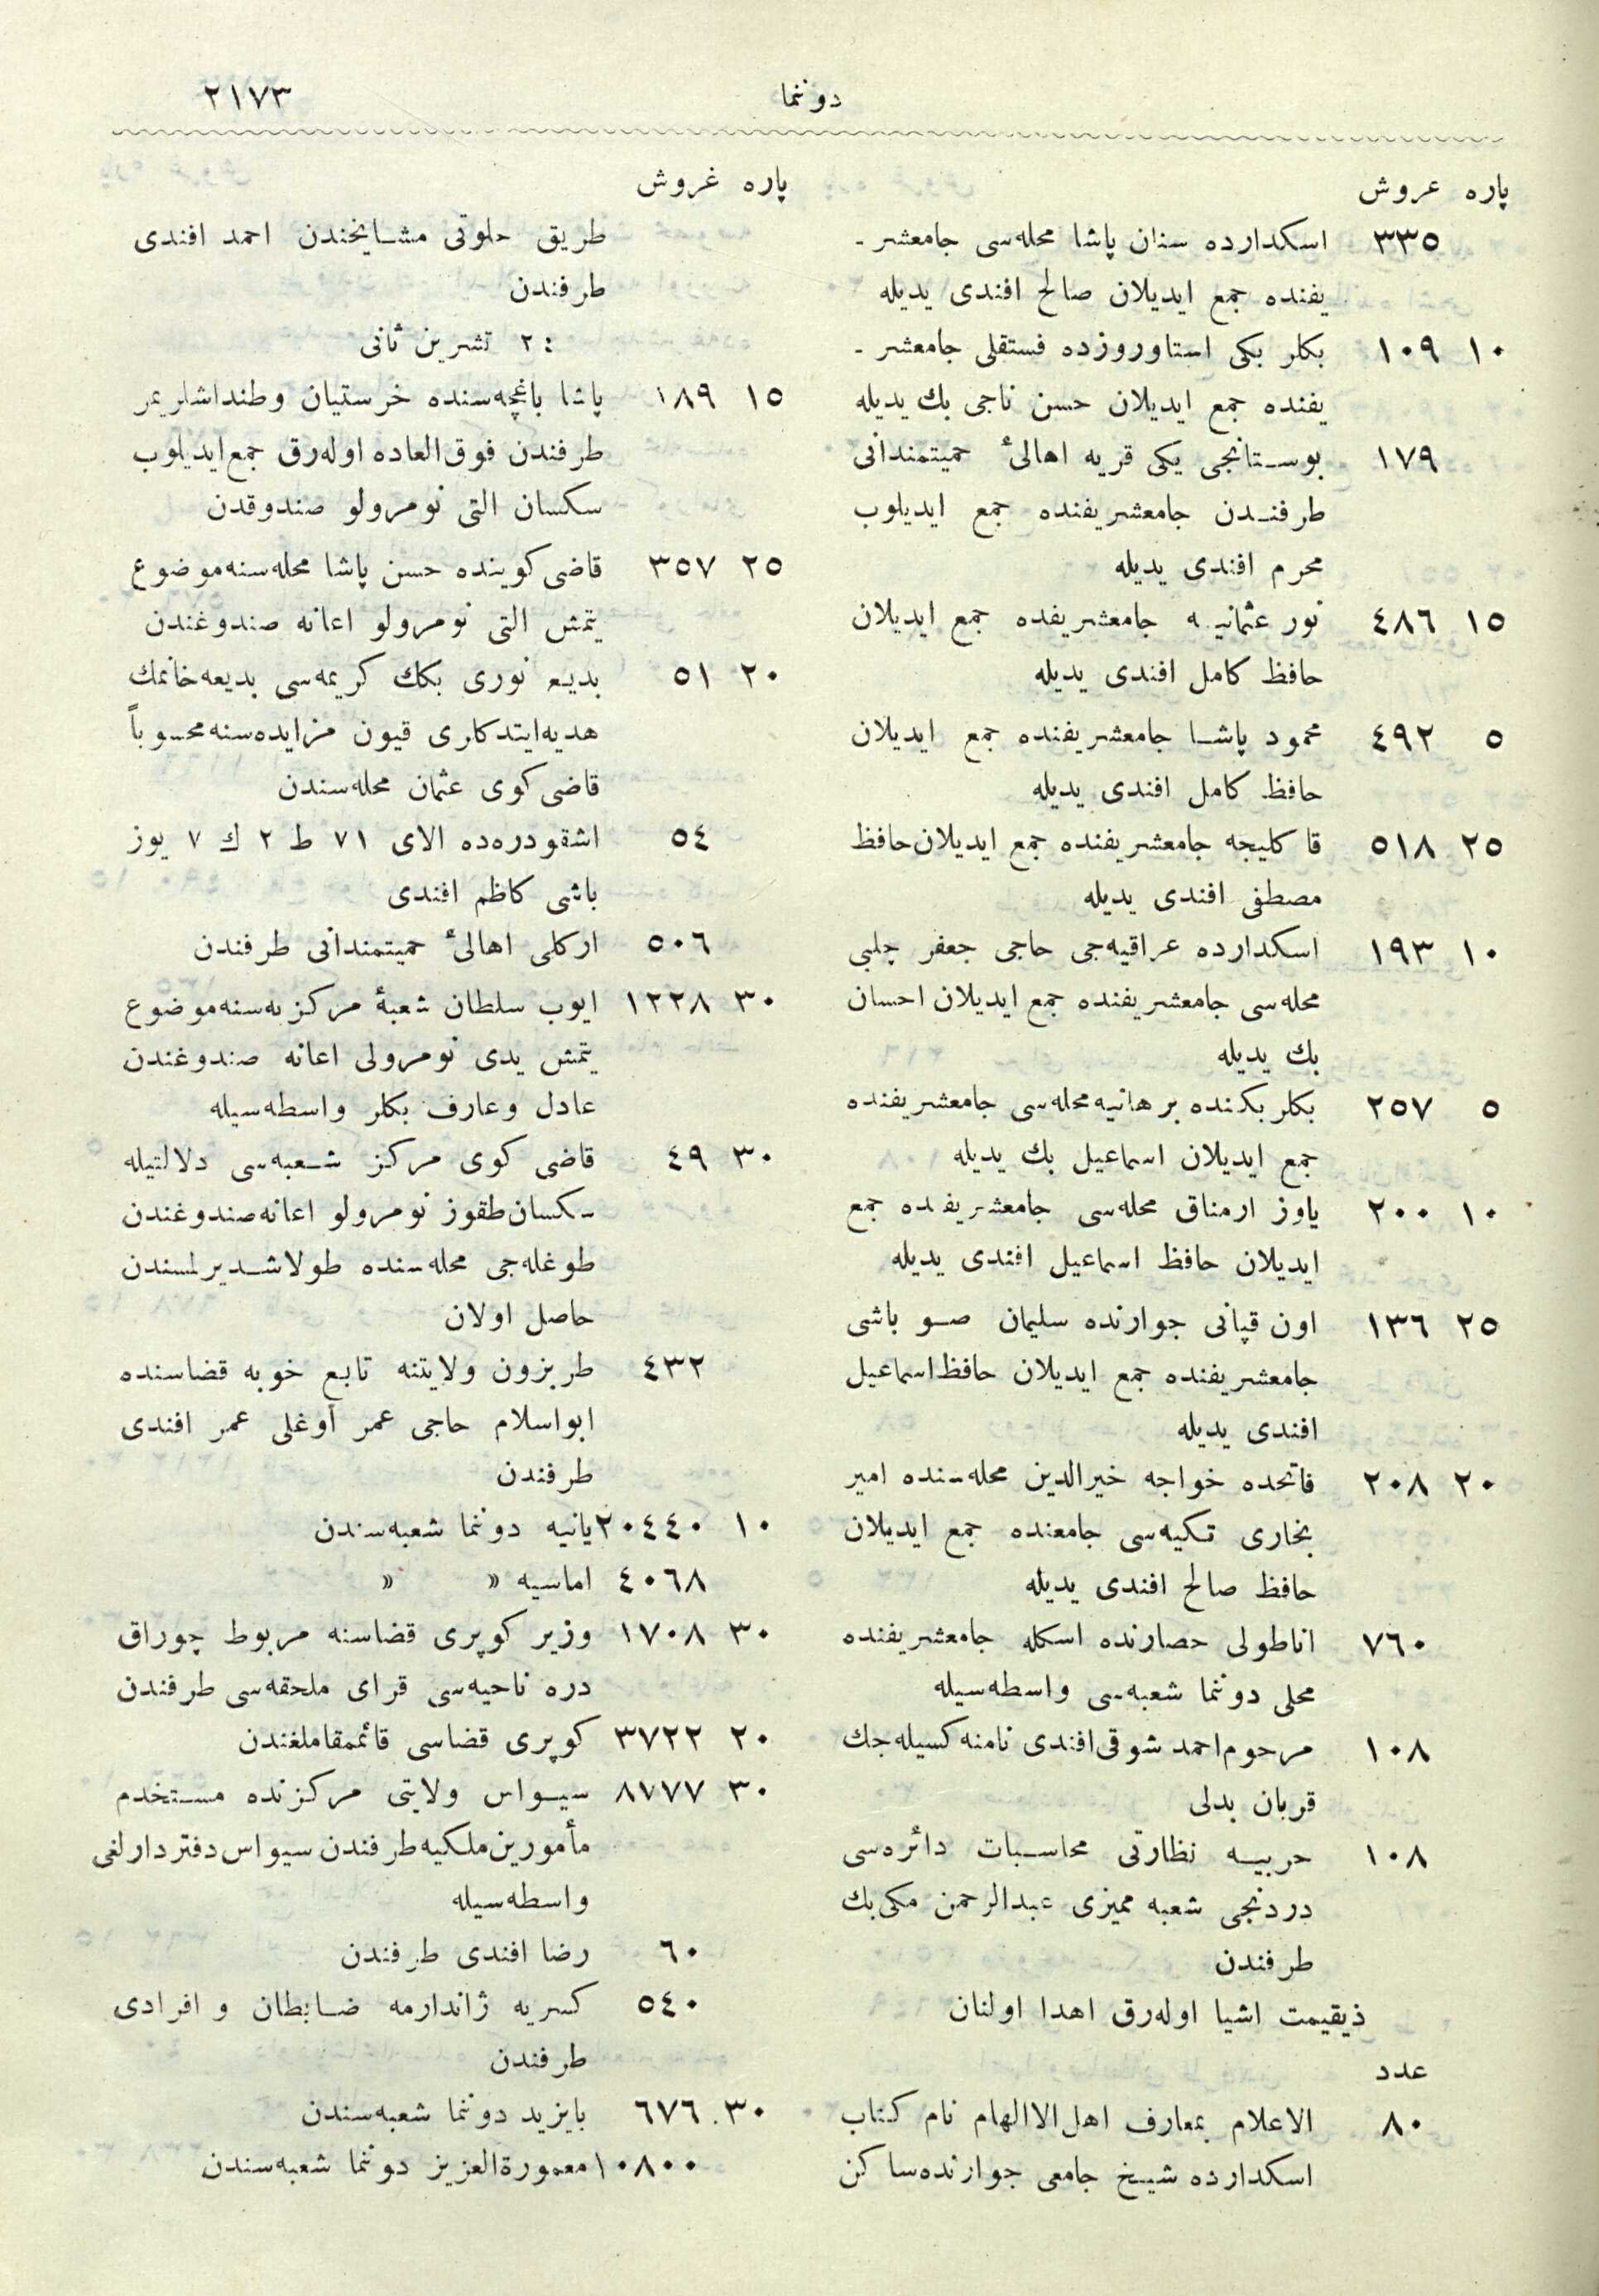 دوننما ٢١٧٣
پاره عروش
٣٣٥ اسكدارده سنان پاشا محله‌سی جامعشر ـ
يفنده جمع ايديلان صالح افندی يديله
١٠ ١٠٩ بكلر بكی استاوروزده فستقلی جامعشر ـ
يفنده جمع ايديلان حسن ناجی بك يديله
١٧٩ بوستانجی يكی قريه اهالیٔ حميتمندانی
طرفندن جامعشريفنده جمع ايديلوب
محرم افندی يديله
١٥ ٤٨٦ نور عثمانيه جامعشريفده جمع ايديلان
حافظ كامل افندی يديله
٥ ٤٩٢ محمود پاشا جامعشريفنده جمع ايديلان
حافظ كامل افندی يديله
٢٥ ٥١٨ قاكليجه جامعشريفنده جمع ايديلان حافظ
مصطفی افندی يديله
١٠ ١٩٣ اسكدارده عراقيه‌جی حاجی جعفر چلبی
محله‌سی جامعشريفنده جمع ايديلان احسان
بك يديله
٥ ٢٥٧ بكلر بكنده برهانيه محله‌سی جامعشريفنده
جمع ايديلان اسماعيل بك يديله
١٠ ٢٠٠ ياوز ارمناق محله‌سی جامعشريفده جمع
ايديلان حافظ اسماعيل افندی يديله
٢٥ ١٣٦ اون قپانی جوارنده سليمان صو باشی
جامعشريفنده جمع ايديلان حافظ اسماعيل
افندی يديله
٢٠ ٢٠٨ فاتحده خواجه خيرالدين محله‌سنده امير
بخاری تكيه‌سی جامعنده جمع ايديلان
حافظ صالح افندی يديله
٧٦٠ اناطولی حصارنده اسكله جامعشريفنده
محلی دوننما شعبه‌سی واسطه‌سيله
١٠٨ مرحوم احمد شوقی افندی نامنه كسيله‌جك
قربان بدلی
١٠٨ حربيه نظارتی محاسبات دائره‌سی
دردنجی شعبه مميزی عبدالرحمن مكی بك
طرفندن
ذيقيمت اشيا اوله‌رق اهدا اولنان
عدد
٨٠ الاعلام بمعارف اهل الاالهام نام كتاب
اسكدارده شيخ جامعی جوارنده ساكن
پاره غروش
طريق حلوتی مشايخندن احمد افندی
طرفندن
٢٤ تشرين ثانی
١٥ ١٨٩ پاشا باغچه‌سنده خرستيان وطنداشلريمز
طرفندن فوق العاده اوله‌رق جمع ايديلوب
سكسان التی نومرولو صندوقدن
٢٥ ٣٥٧ قاضی كوينده حسن پاشا محله‌سنه موضوع
يتمش التی نومرولو اعانه صندوغندن
٢٠ ٥١ بديع نوری بكك كريمه‌سی بديعه خانمك
هديه ايتدكاری قيون مزايده‌سنه محسوباً
قاضی كوی عثمان محله‌سندن
٥٤ اشقودره‌ده الای ٧١ ط ٢ ك ٧ يوز
باشی كاظم افندی
٥٠٦ اركلی اهالیٔ حميتمندانی طرفندن
٣٠ ١٢٢٨ ايوب سلطان شعبهٔ مركزيه‌سنه موضوع
يتمش يدی نومرولی اعانه صندوغندن
عادل وعارف بكلر واسطه‌سيله
٣٠ ٤٩ قاضی كوی مركز شعبه‌سی دلالتيله
سكسان طقوز نومرولو اعانه صندوغندن
طوغله‌جی محله‌سنده طولاشديرلمسندن
حاصل اولان
٤٣٢ طربزون ولايتنه تابع خوپه قضاسنده
ابواسلام حاجی عمر اوغلی عمر افندی
طرفندن
١٠ ٢٠٤٤٠ يانيه دوننما شعبه‌سندن
٤٠٦٨ اماسيه » »
٣٠ ١٧٠٨ وزير كوپری قضاسنه مربوط چوراق
دره ناحيه‌سی قرای ملحقه‌سی طرفندن
٢٠ ٣٧٢٢ كوپری قضاسی قائممقاملغندن
٣٠ ٨٧٧٧ سيواس ولايتی مركزنده مستخدم
مأمورين ملكيه طرفندن سيواس دفتردارلغی
واسطه‌سيله
٦٠ رضا افندی طرفندن
٥٤٠ كسريه ژاندارمه ضابطان و افرادی
طرفندن
٣٠ ٦٧٦ بايزيد دوننما شعبه‌سندن
١٠٨٠٠ معمورةالعزيز دوننما شعبه‌سندن